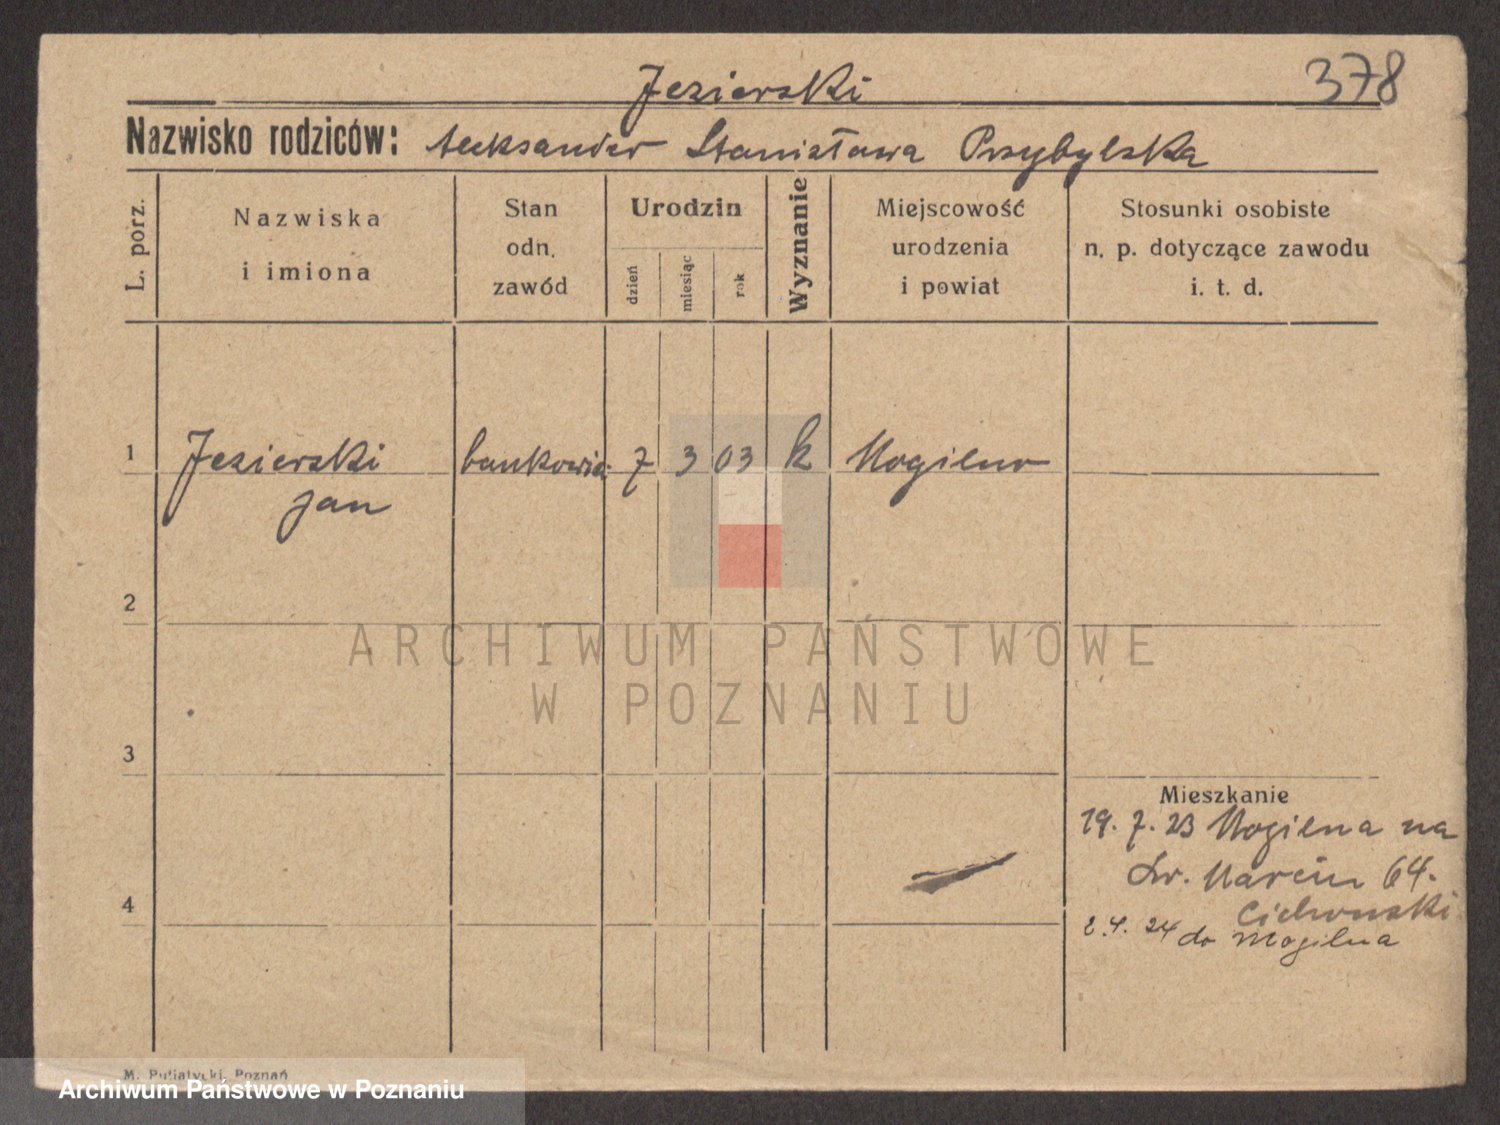 Jezierski
378
Nazwisko rodziców: Aleksander Stanisława Przybylska
L. porz.
Nazwiska
i imiona
Stan
odn.
zawód
Urodzin
dzień
miesiąc
rok
Wyznanie
Miejscowość
urodzenia
i powiat
Stosunki osobiste
n. p. dotyczące zawodu
i. t. d.
1 Jezierski bankowiec 7 3 03 k Mogilno
Jan
2
3
4
Mieszkanie
19. 7. 23 Mogilna na
św. Marcin 64.
Cichowski
2. 4. 24 do Mogilna
M. Putiatycki, Poznań
ARCHIWUM PAŃSTWOWE
W POZNANIU
Archiwum Państwowe w Poznaniu